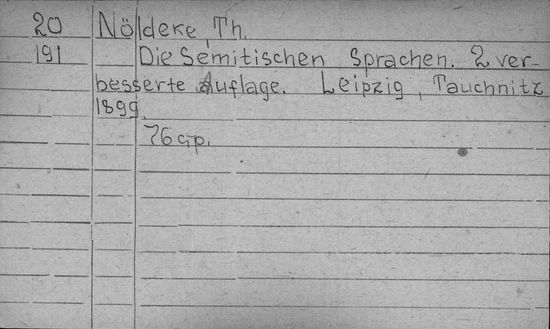 20 Nöldeke, Th.
191 Die Semitischen Sprachen. 2 ver-
besserte Auflage. Leipzig, Tauchnitz
1899.
76 стр.